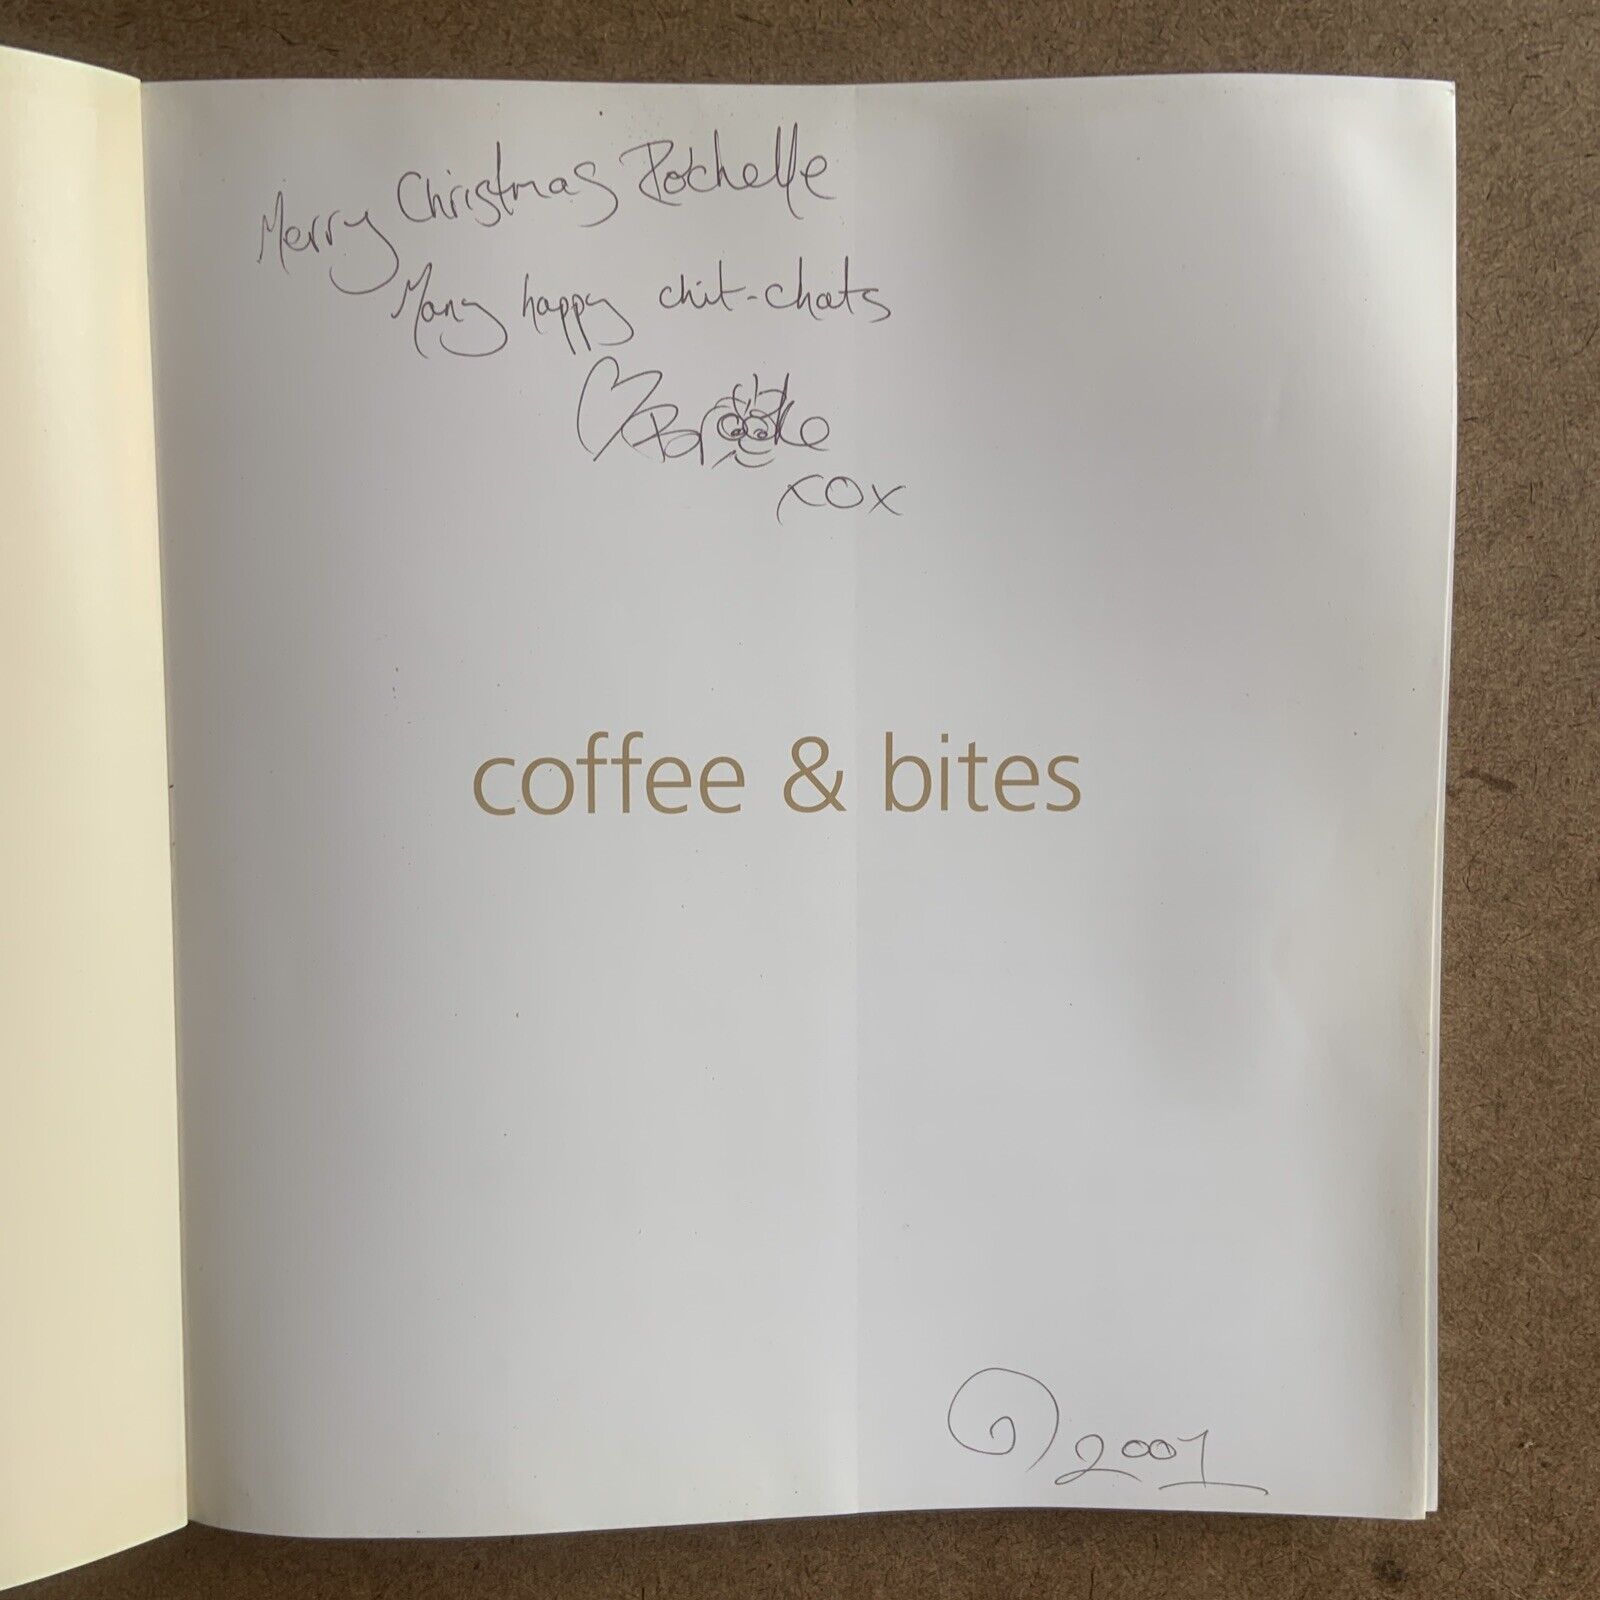 Merry Christmas Rochelle
Many happy chit-chats
Brooke
xox
coffee & bites
2001